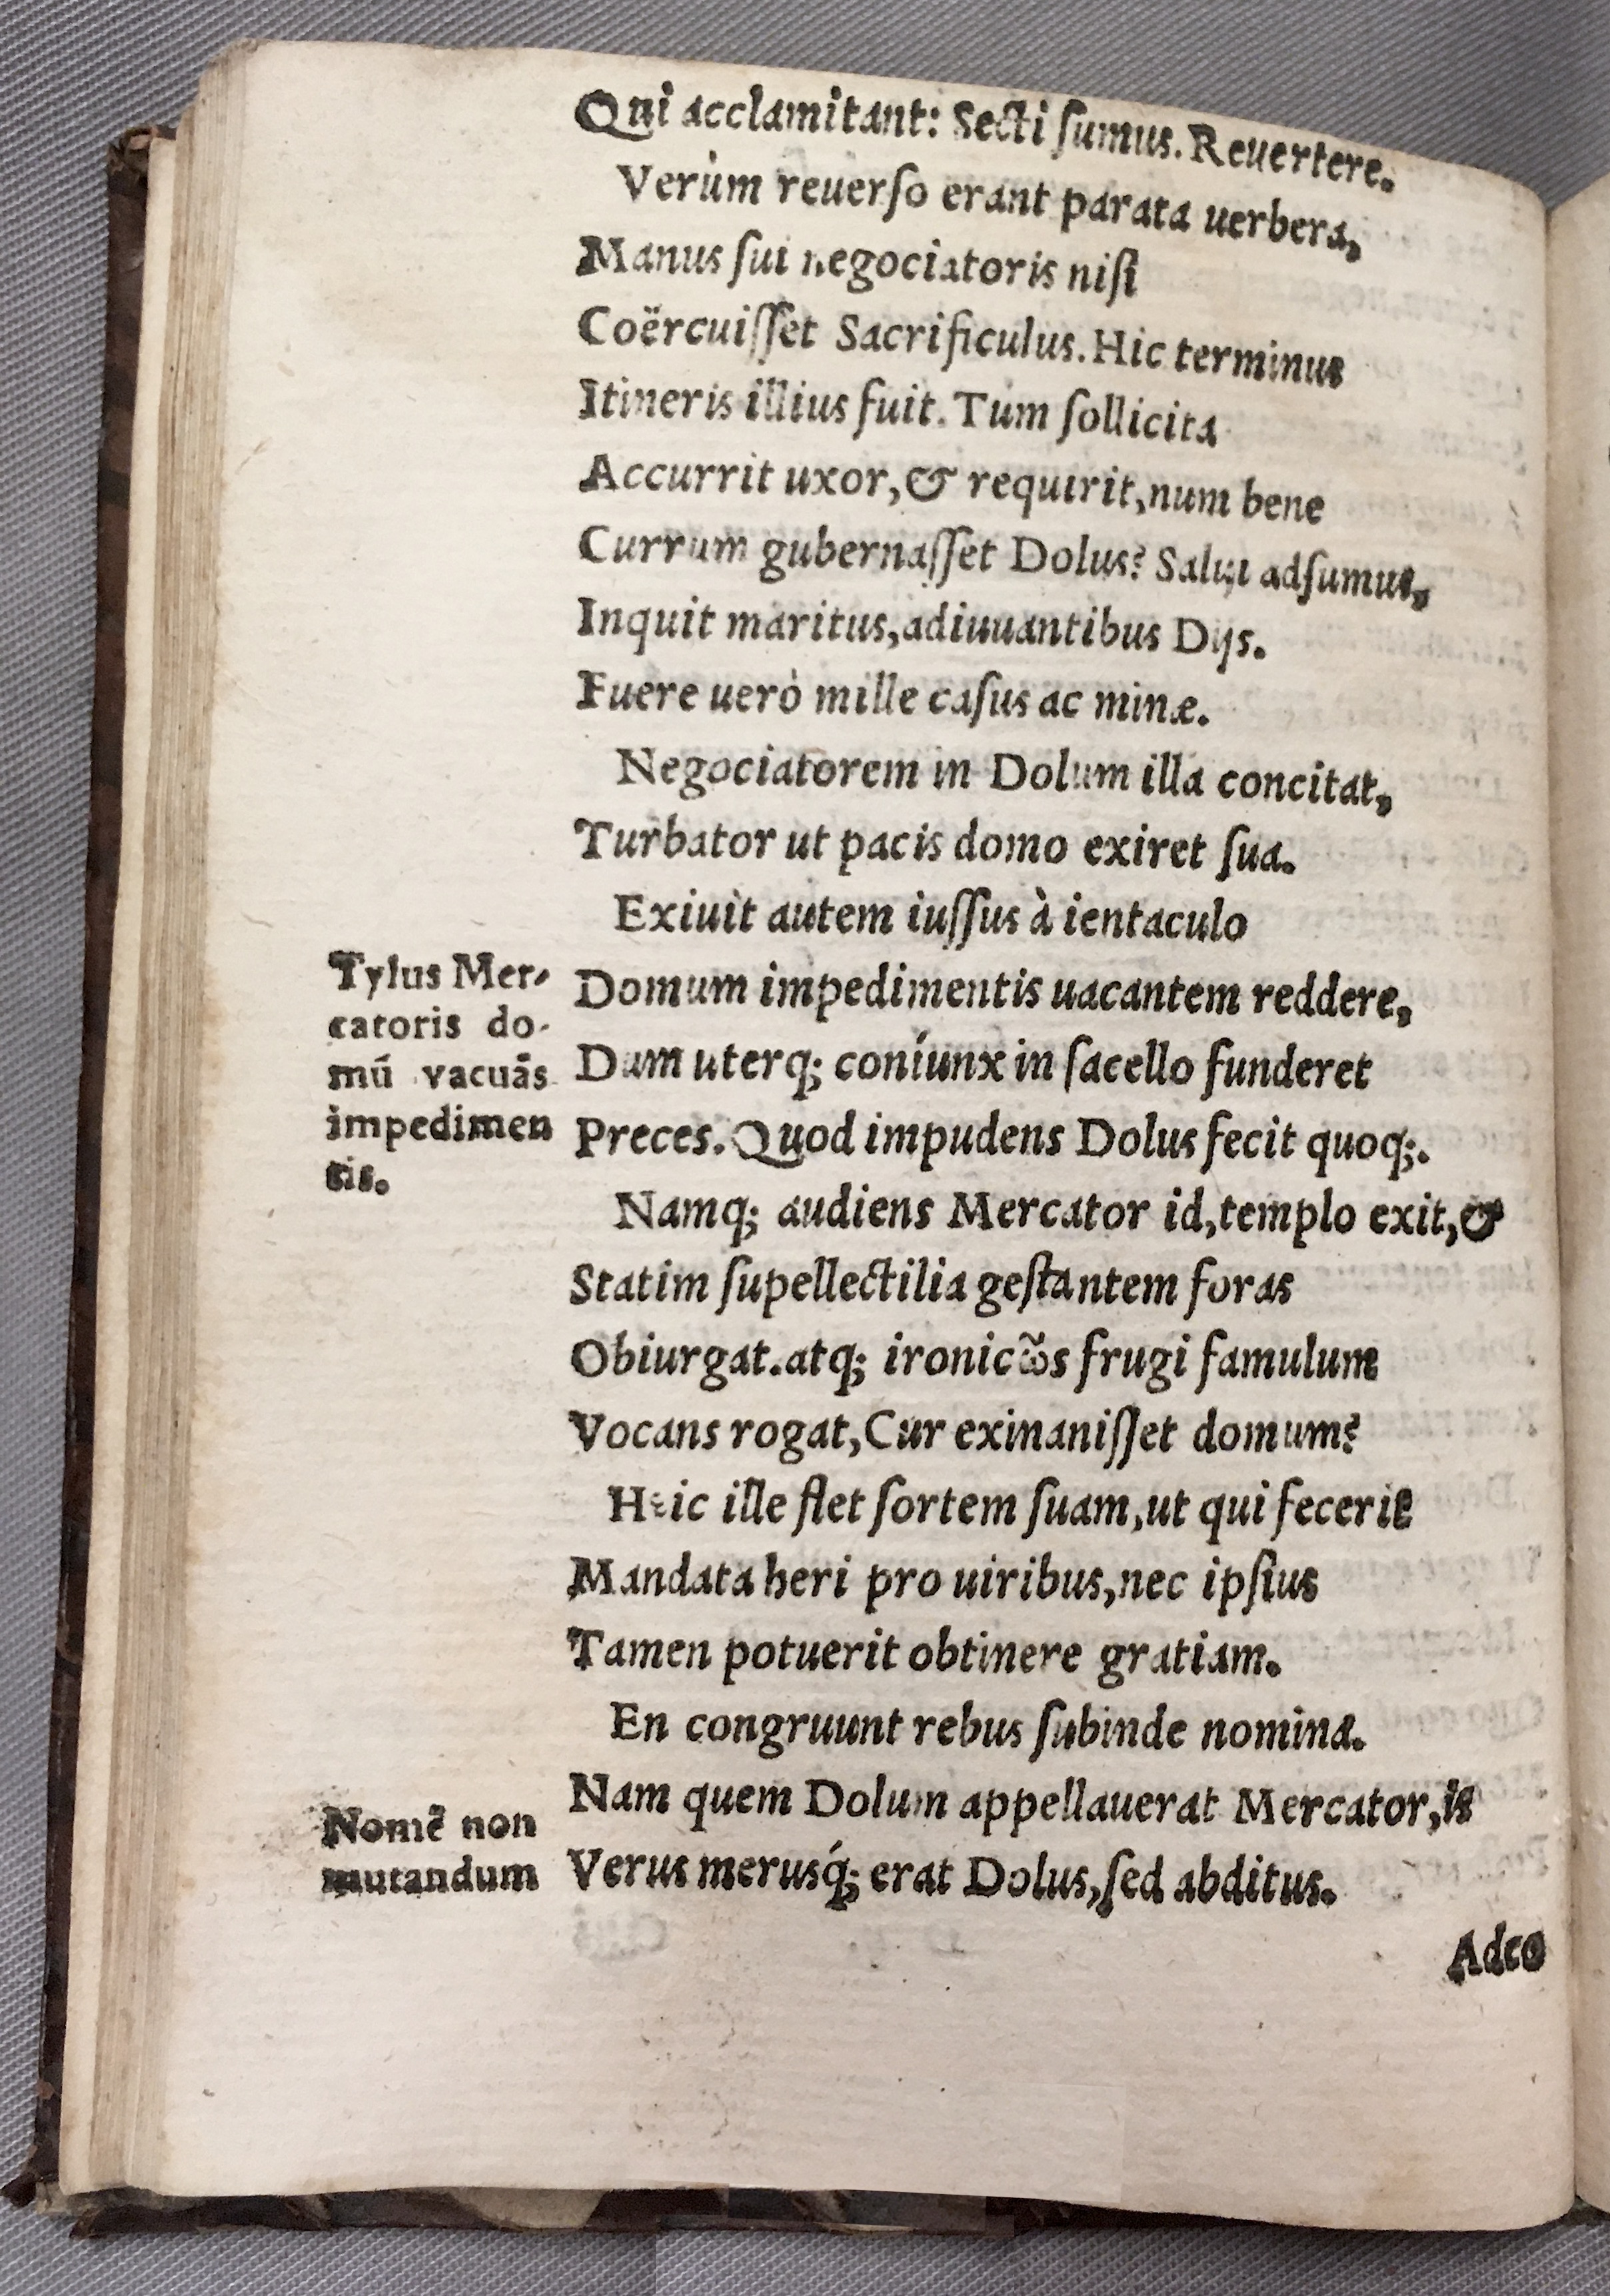 Qui acclamitant: Secti ſumus. Reuertere.
Verùm reuerſo erant parata uerbera,
Manus ſui negociatoris niſi
Coërcuiſſet Sacrificulus. Hic terminus
Itineris illius fuit. Tum ſollicita
Accurrit uxor, & requirit, num bene
Currum gubernaſſet Dolus? Salui adſumus,
Inquit maritus, adiuuantibus Dijs.
Fuere uerò mille caſus ac minæ.
Negociatorem in Dolum illa concitat,
Turbator ut pacis domo exiret ſua.
Exiuit autem iuſſus à ientaculo
Domum impedimentis uacantem reddere,
Dum uterq; coníunx in ſacello funderet
Preces. Quod impudens Dolus fecit quoq;.
Namq; audiens Mercator id, templo exit, &
Statim ſupellectilia geſtantem foras
Obiurgat. atq; ironicω̃s frugi famulum
Vocans rogat, Cur exinaniſſet domum?
Heic ille flet ſortem ſuam, ut qui fecerit
Mandata heri pro uiribus, nec ipſius
Tamen potuerit obtinere gratiam.
En congruunt rebus ſubinde nomina.
Nam quem Dolum appellauerat Mercator, is
Verus merusq́; erat Dolus, ſed abditus.
Adeo
Tylus Mer-
catoris do-
mū vacuās
impedimen
tis.
Nomē non
mutandum